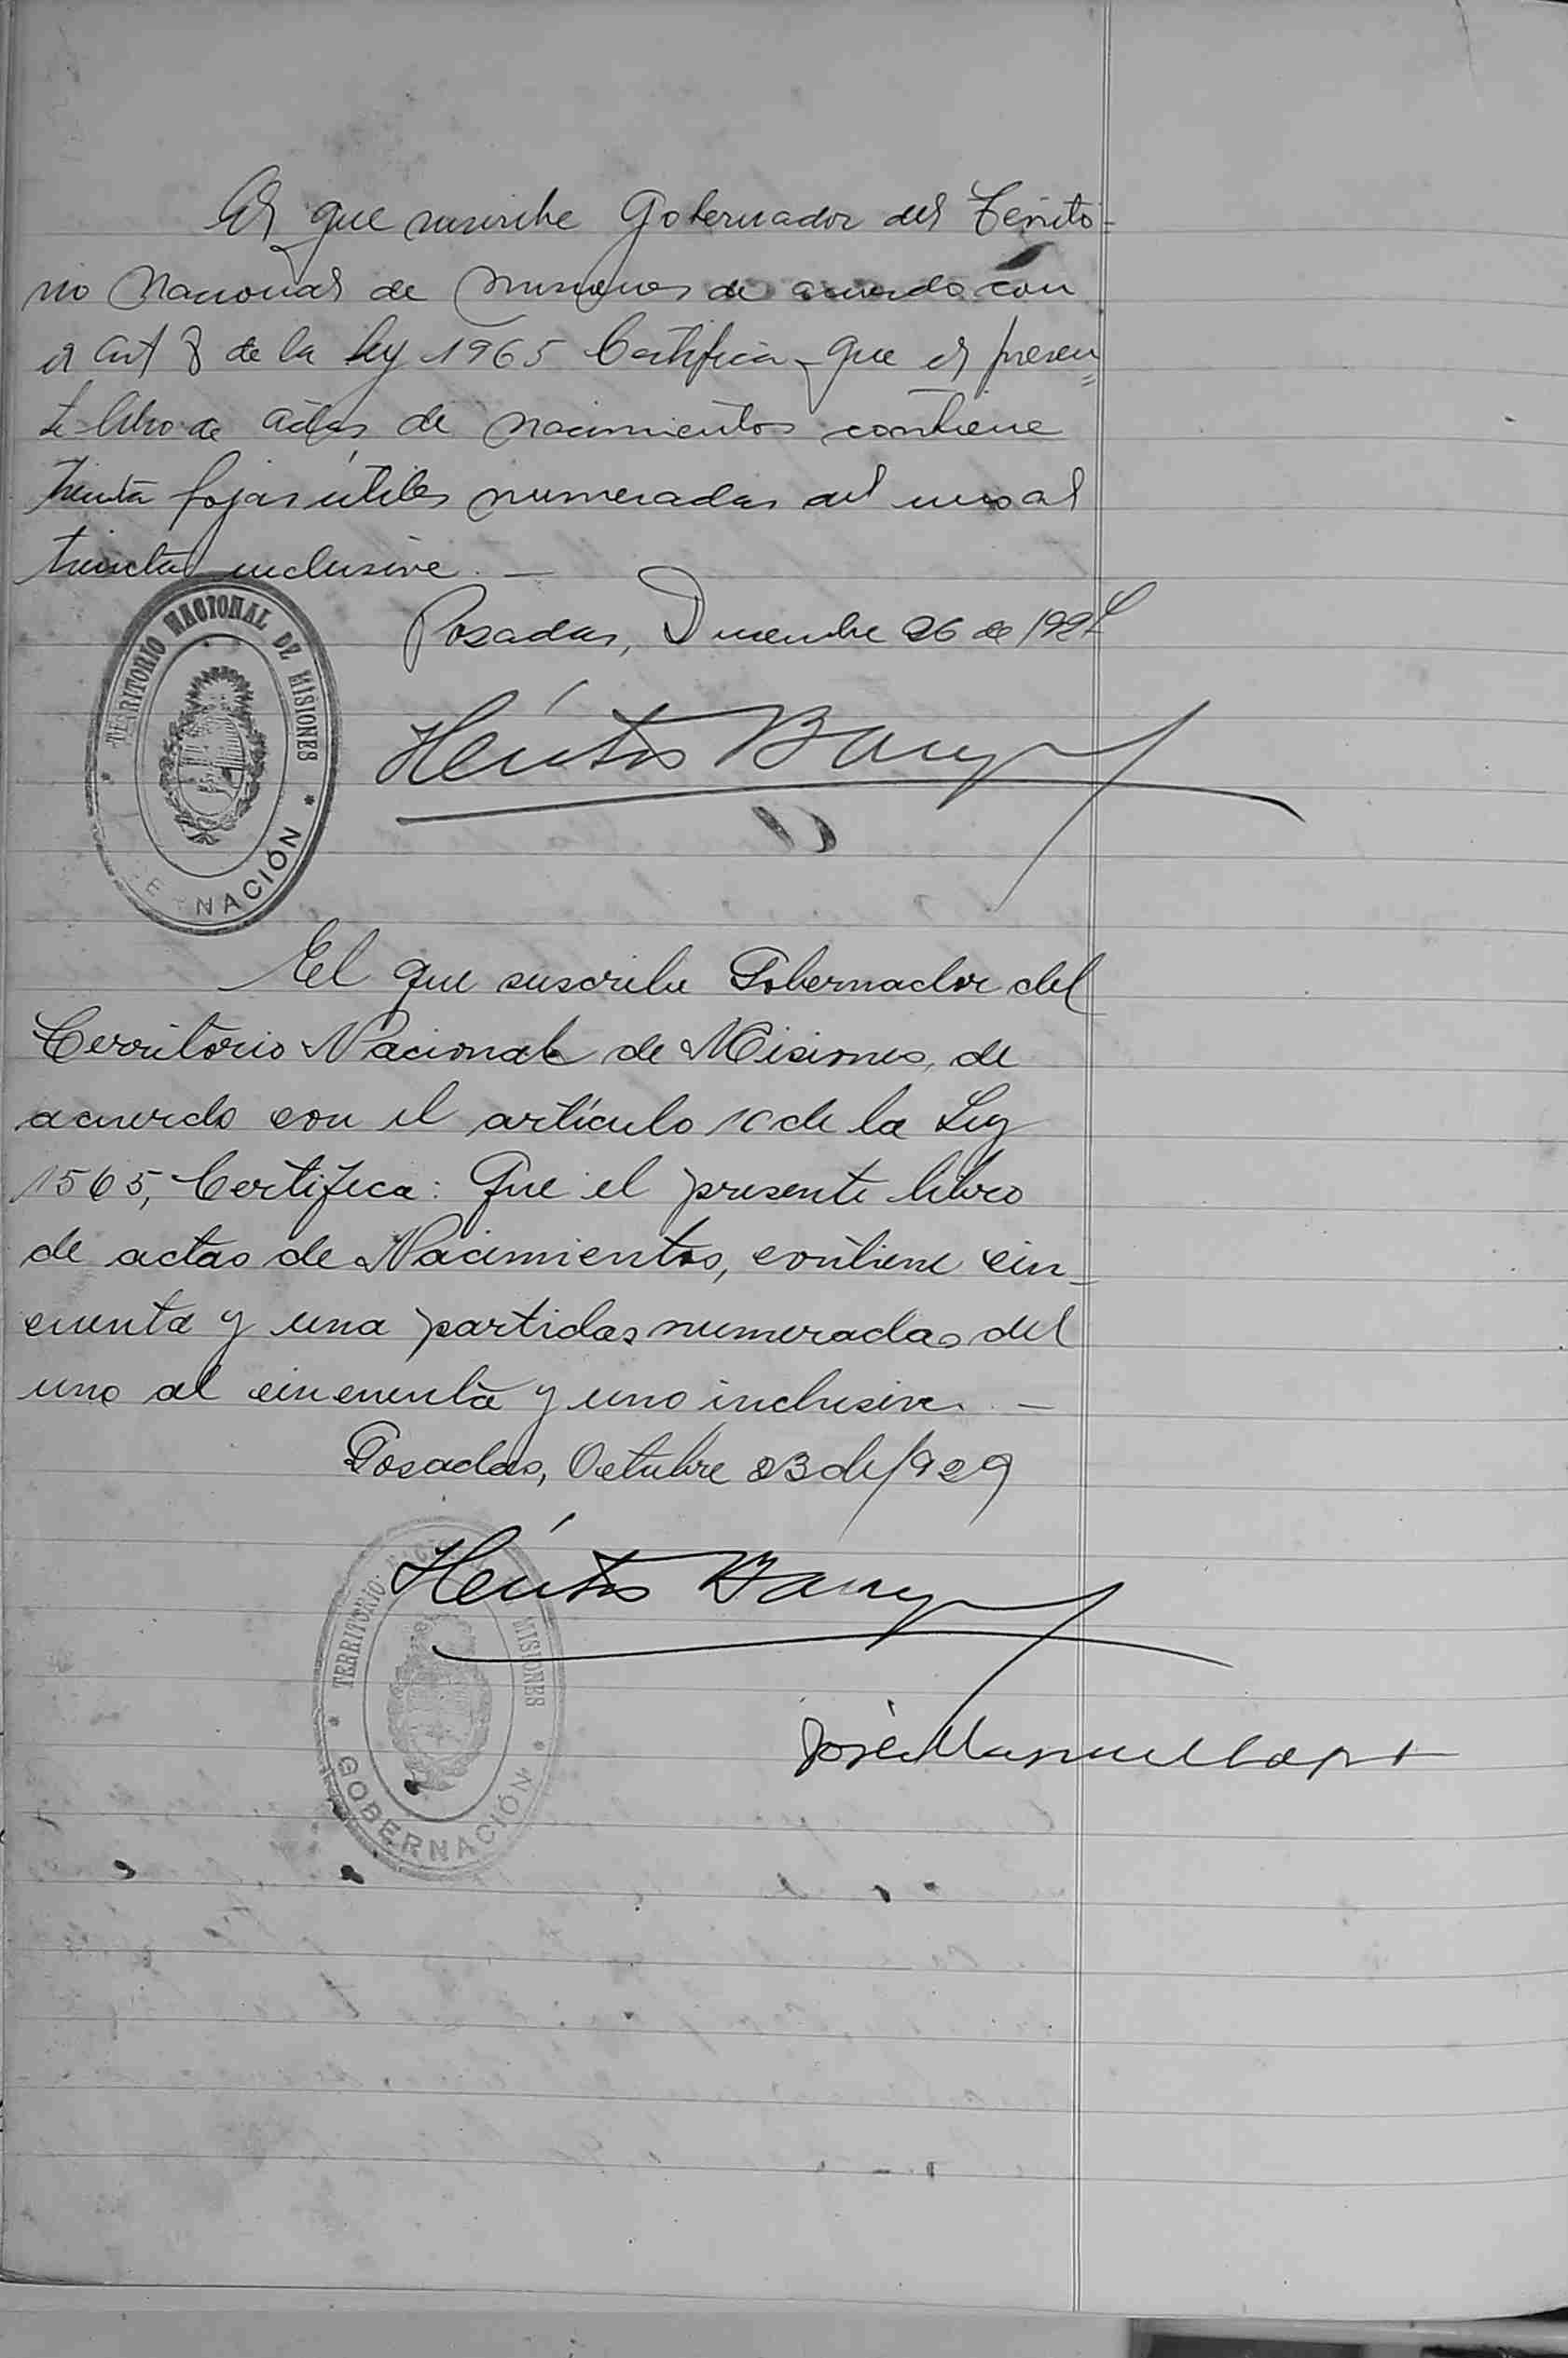 El que suscribe Gobernador del Territo=
rio Nacional de Misiones de acuerdo con
el art 8 de la ley 1965 Certifica - que el presen=
te libro de actas de nacimientos contiene
treinta fojas útiles numeradas del uno al
treinta inclusive. —
Posadas, Diciembre 26 de
TERRITORIO NACIONAL DE MISIONES
NACIÓN
Héctor Barreyro
El que suscribe Gobernador del
Territorio Nacional de Misiones, de
acuerdo con el artículo 10 de la Ley
1565, Certifica: Que el presente libro
de actas de Nacimientos, contiene cin=
cuenta y una partidas numeradas del
uno al cincuenta y uno inclusive. —
Posadas, Octubre 23 de 1929
Héctor Barreyro
TERRITORIO NACIONAL MISIONES
GOBERNACIÓN
José Manuel